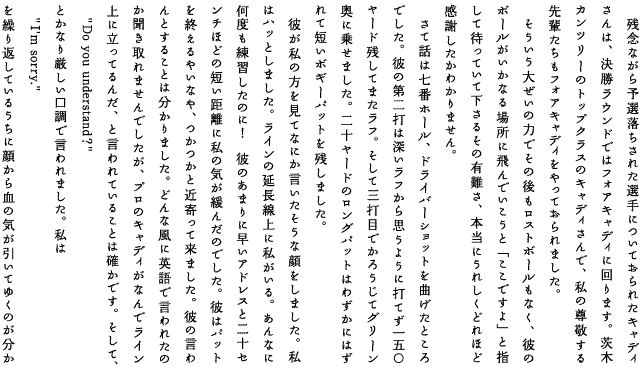 残念ながら予選落ちされた選手についておられたキャディ
さんは、決勝ラウンドではフォアキャディに回ります。茨木
カンツリーのトップクラスのキャディさんで、私の尊敬する
先輩たちもフォアキャディをやっておられました。
そういう大ぜいの力でその後もロストボールもなく、彼の
ボールがいかなる場所に飛んでいこうと「ここですよ」と指
して待っていて下さるその有難さ、本当にうれしくどれほど
感謝したかわかりません。
さて話は七番ホール、ドライバーショットを曲げたところ
でした。彼の第二打は深いラフから思うように打てず一五〇
ヤード残してまたラフ。そして三打目でかろうじてグリーン
奥に乗せました。二十ヤードのロングパットはわずかにはず
れて短いボギーパットを残しました。
彼が私の方を見てなにか言いたそうな顔をしました。私
はハッとしました。ラインの延長線上に私がいる。あんなに
何度も練習したのに！　彼のあまりに早いアドレスと二十セ
ンチほどの短い距離に私の気が緩んだのでした。彼はパット
を終えるやいなや、つかつかと近寄って来ました。彼の言わ
んとすることは分かりました。どんな風に英語で言われたの
か聞き取れませんでしたが、プロのキャディがなんでライン
上に立ってるんだ、と言われていることは確かです。そして、
"Do you understand?"
とかなり厳しい口調で言われました。私は
"I'm sorry."
を繰り返しているうちに顔から血の気が引いてゆくのが分か